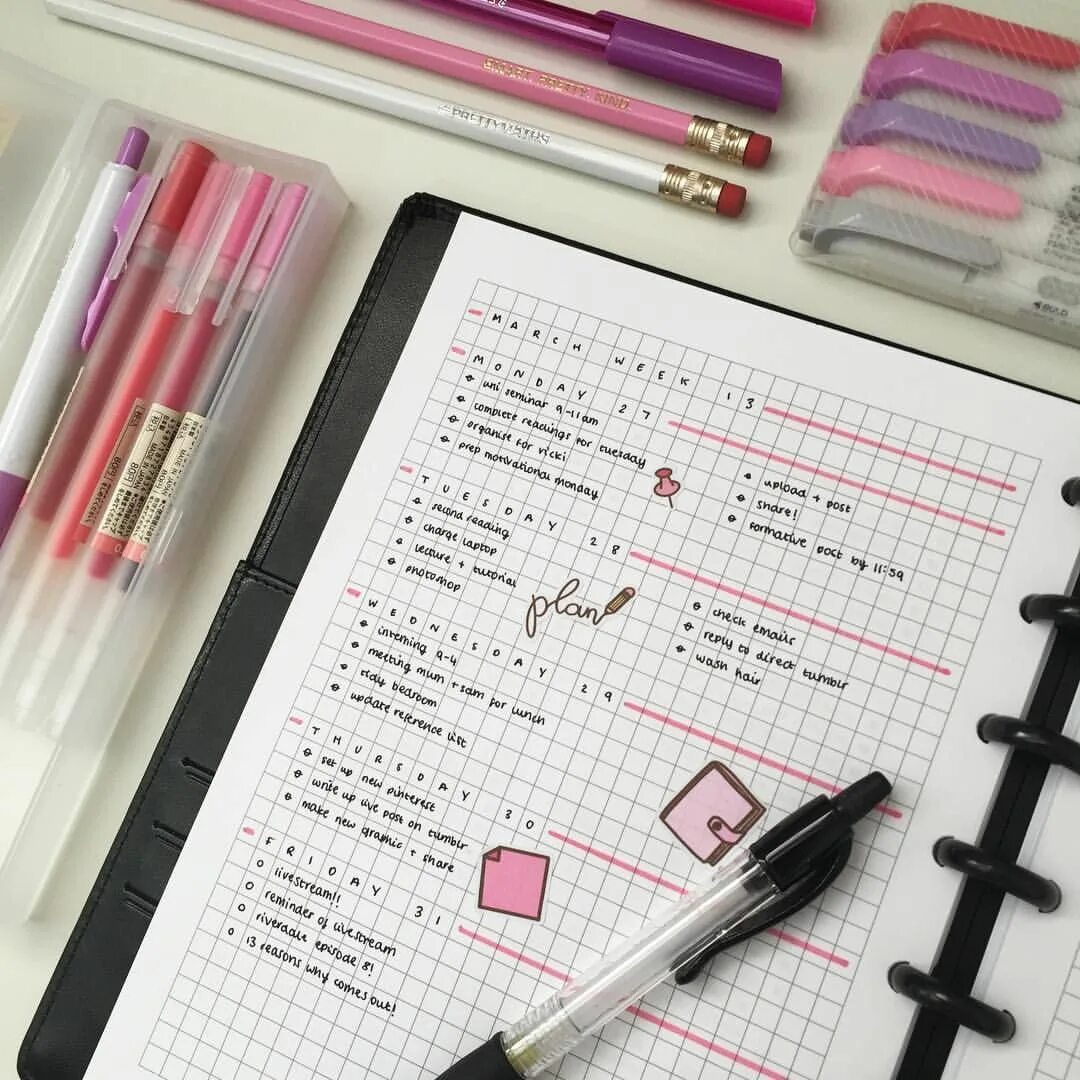 SMART. PRETTY. KIND.
MARCH WEEK 13
MONDAY 27
uni seminar 9-11am
complete readings for tuesday
organise for vicki
prep motivational monday
upload + post
share!
formative post by 11:59
TUESDAY 28
second reading
charge laptop
lecture + tutorial
photoshop
plan
check emails
reply to direct tumblr
wash hair
WEDNESDAY 29
interning 9-4
meeting mum + sam for lunch
tidy bedroom
update reference list
THURSDAY 30
set up new pinterest
write up live post on tumblr
make new graphic + share
FRIDAY 31
livestream!!
reminder of livestream
riverdale episode 8!
13 reasons why comes out!